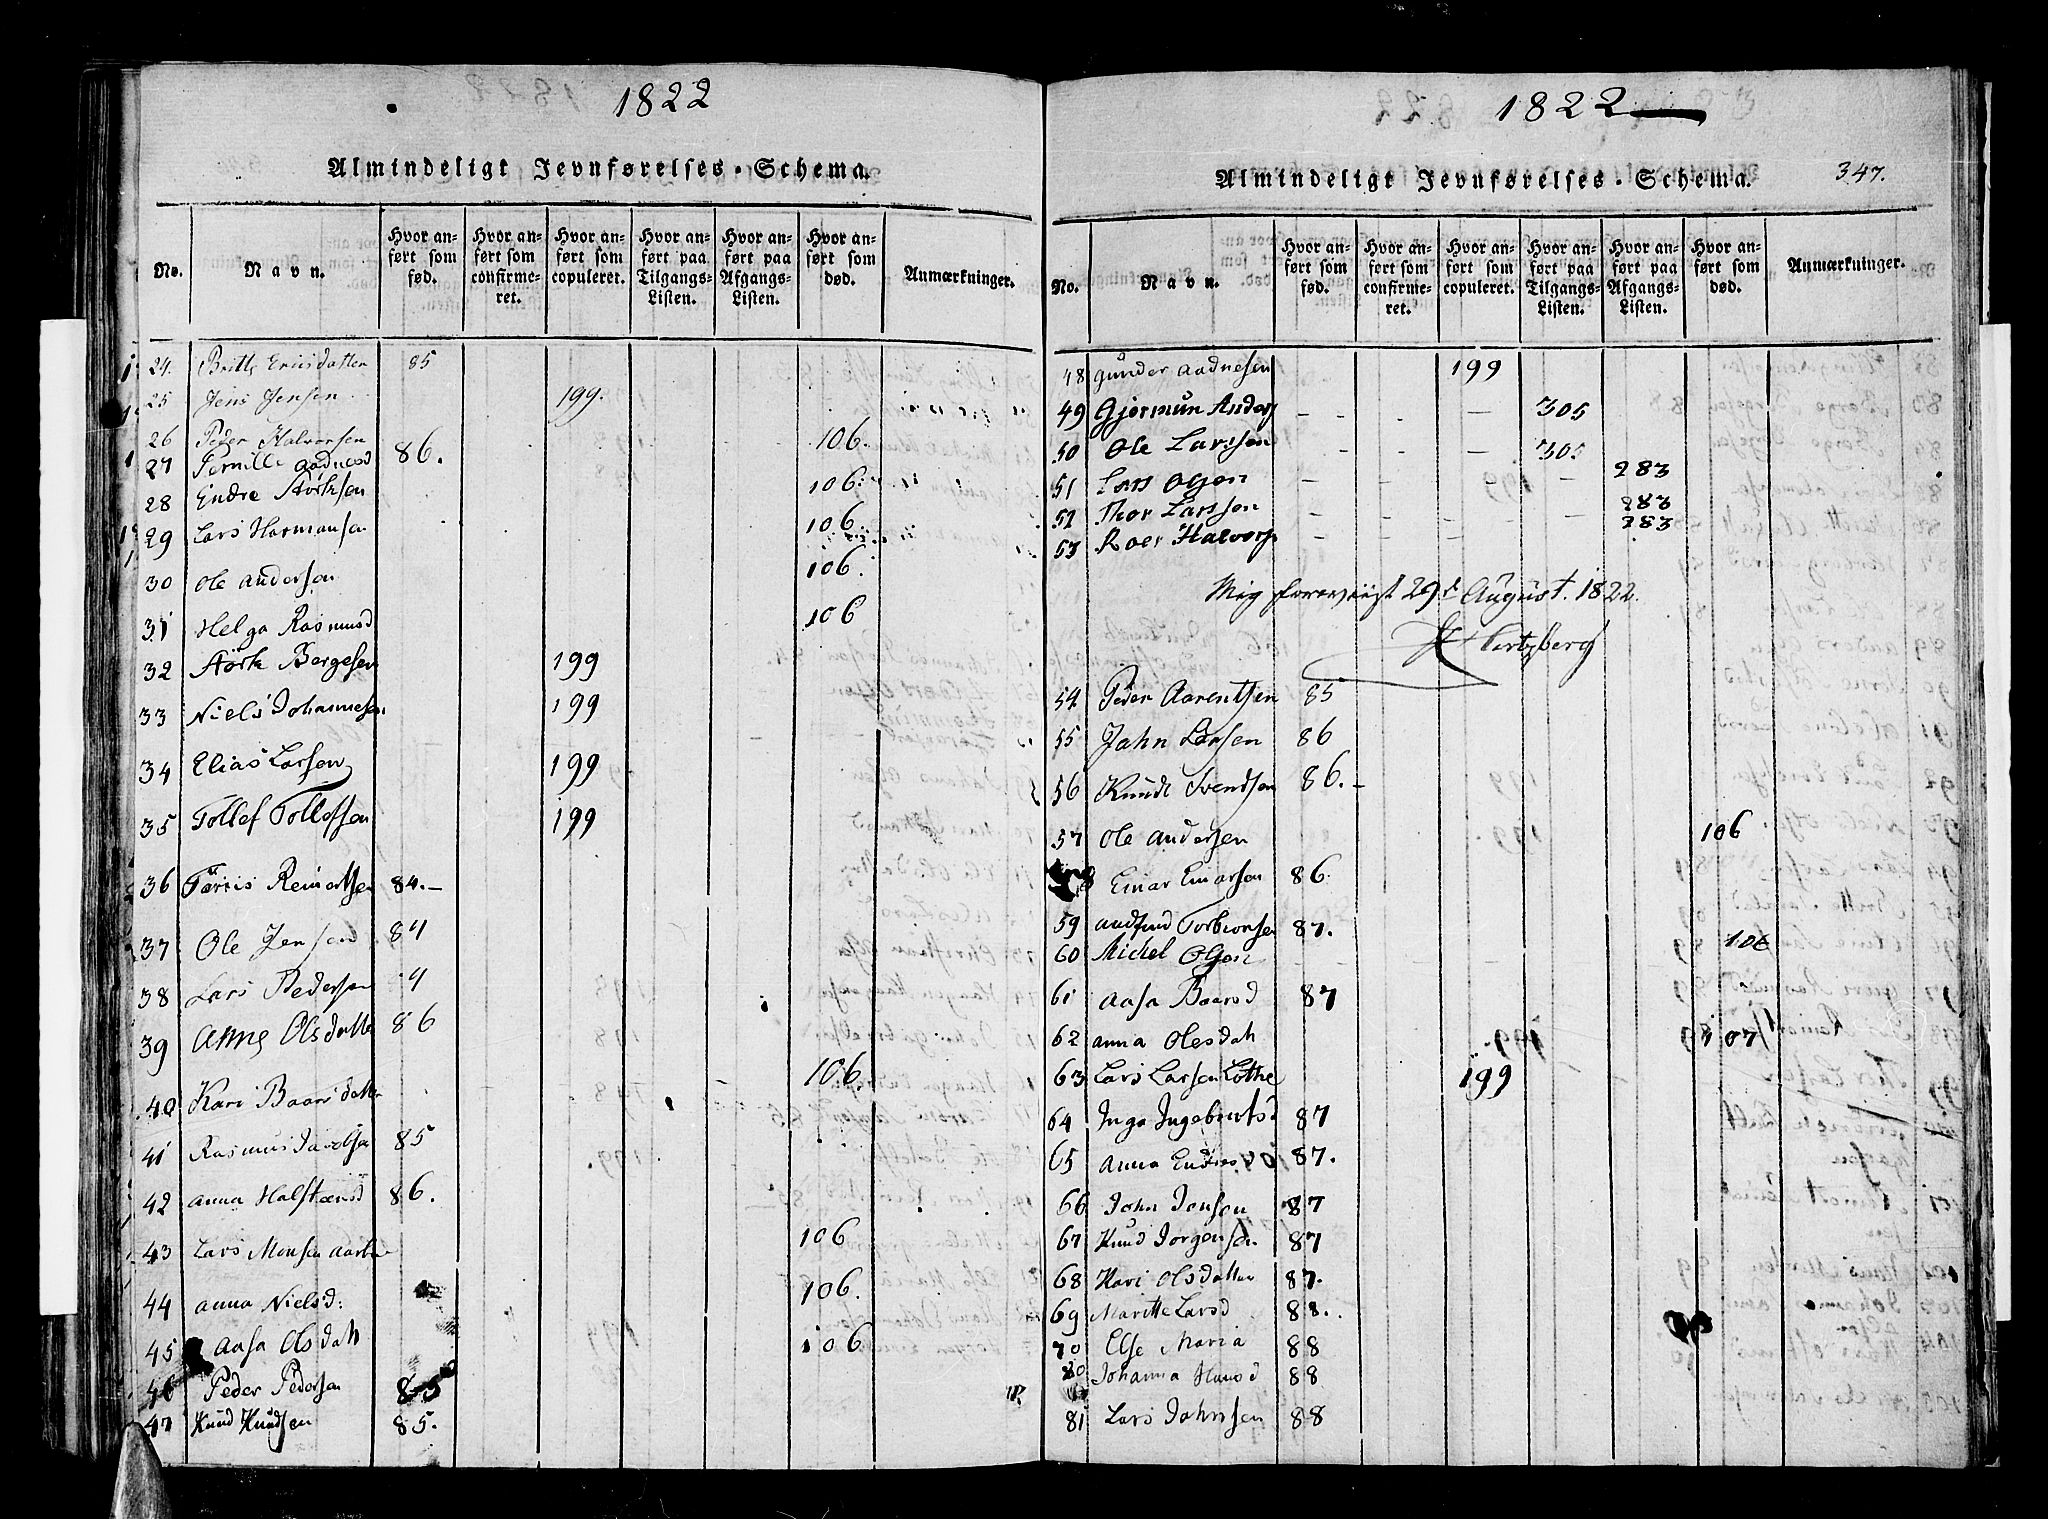 1822
Almindeligt Jevnførelses-Schema.
No. Navn. Hvor anført som fød. Hvor anført som confirmeret. Hvor anført som copuleret. Hvor anført paa Tilgangs-Listen. Hvor anført paa Afgangs-Listen. Hvor anført som død. Anmærkninger.
24. Britte Ericsdatter 85
25 Jens Jensen 199.
26 Peder Halvorsen 106.
27 Pernille Aadnesd 86.
28 Endre Størksen 106.
29 Lars Hermansen 106
30 Ole Andersen 106.
31 Helga Rasmusd 106
32 Størk Bergesen 199
33 Niels Johannesen 199
34 Elias Larsen 199
35 Tollef Tollofsen 199
36 Tarris Reinertsen 84.-
37 Ole Jensen 84
38 Lars Pedersen 84
39 Anne Olsdatter 86
40 Kari Baarsdatter 106.
41 Rasmus 85
42 Anna Halstensd 86.
43 Lars Monsen 106
44 Anna Nielsd: 106.
45 Aasa Olsdatt 106
46 Peder Pedersen 85
47 Knud Knudsen 85.
1822
347.
Almindeligt Jevnførelses-Schema.
No. Navn. Hvor anført som fød. Hvor anført som confirmeret. Hvor anført som copuleret. Hvor anført paa Tilgangs-Listen. Hvor anført paa Afgangs-Listen. Hvor anført som død. Anmærkninger.
48 Gunder Aadnesen 199
49 Gjermun Anders - - - 305
50 Ole Larsen - - - 305
51 Lars Olsen - - - - 283
52 Thor Larssen - - - - 283
53 Roer Halvors - - - - 283
Mig foreviist 29d August. 1822.
Hertzberg
54 Peder Aarentsen 85
55 Jahn Larsen 86
56 Knudt Svendsen 86.-
57 Ole Andersen 106
58 Einar Einarsen 86
59 Audfind Torbiorsen 87.
60 Michel Olsen 106
61 Aasa Baarsd 87
62 Anna Olesdatt 107
63 Lars Larsen Lothe 199
64 Inga Ingebrictsd 87
65 Anna Endresd 87.
66 John Jonsen 87
67 Knud Jorgensen 87
68 Kari Olsdatter 87.
69 Maritte Larsd 88.
70 Else Maria 88
80 Johanna Hansd 88
81 Lars Johnsen 88